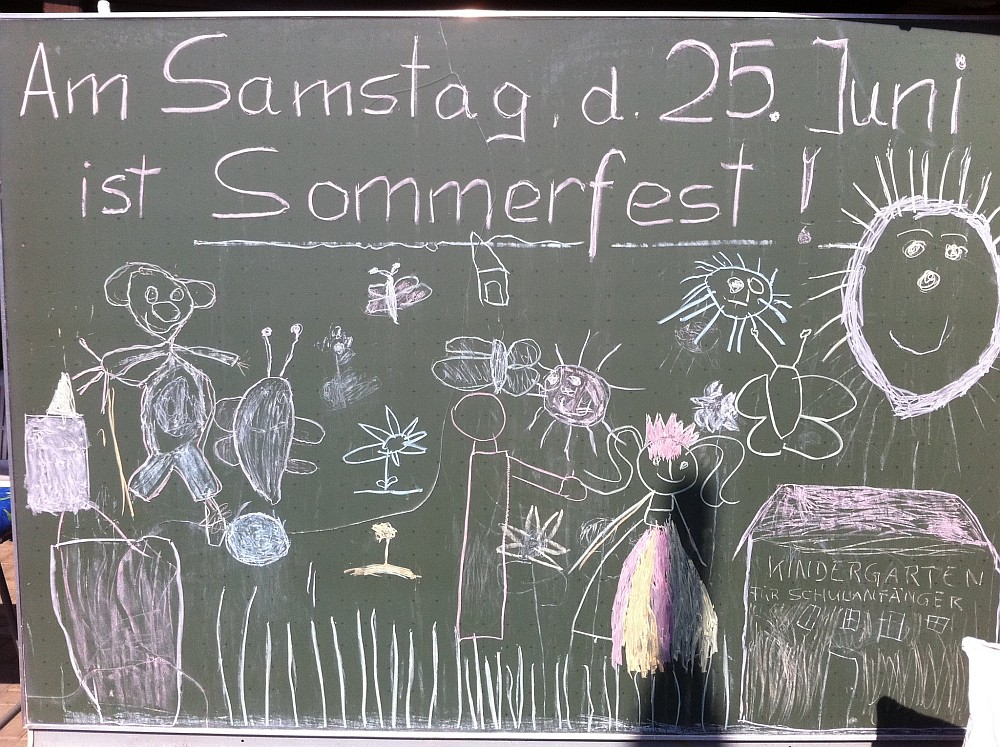 Am Samstag, d. 25. Juni
ist Sommerfest!
KINDERGARTEN
FÜR SCHULANFÄNGER